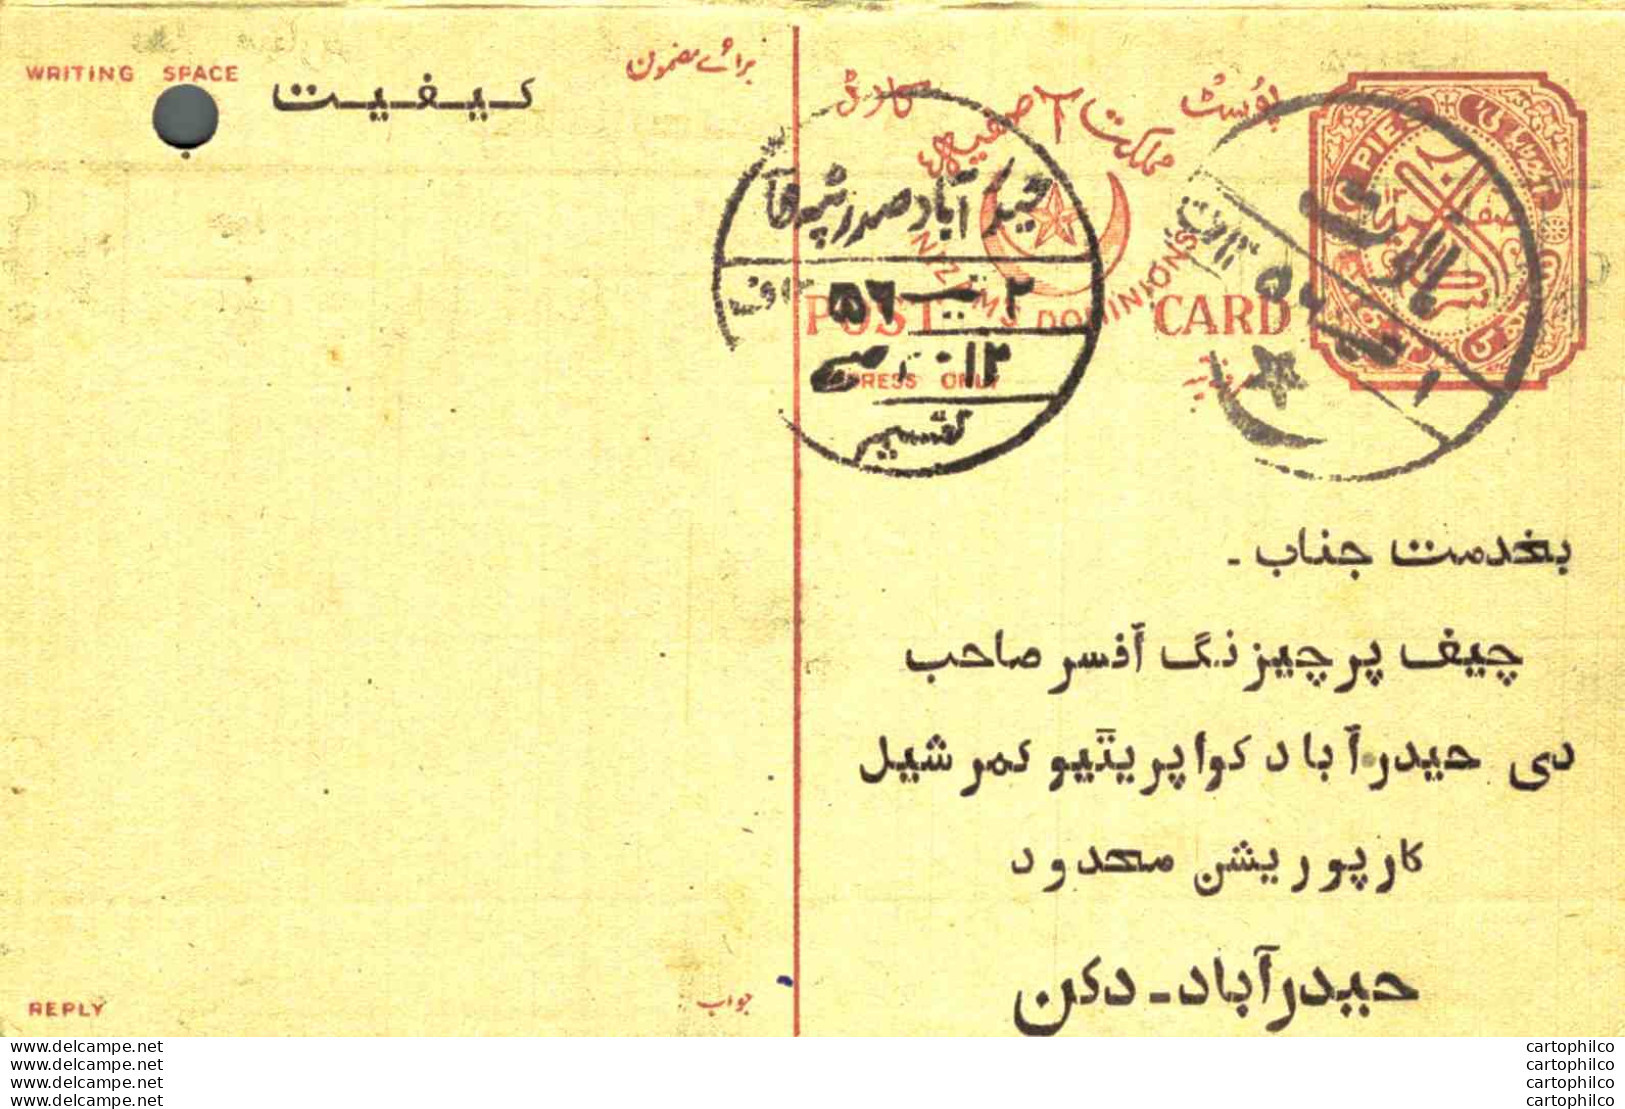 WRITING SPACE
برائے مضمون
کیفیت
پوسٹ کارڈ
مملکت آصفیہ
NIZAM'S DOMINIONS
POST CARD
PIES
حیدرآباد صدر ٹپہ
۲ ۵۶ ف
تقسیم
بخدمت جناب -
چیف پرچیزنگ آفسر صاحب
دی حیدرآباد کواپریٹیو کمرشیل
کارپوریشن محدود
حیدرآباد - دکن
REPLY
جواب
www.delcampe.net
www.delcampe.net
www.delcampe.net
www.delcampe.net
cartophilco
cartophilco
cartophilco
cartophilco